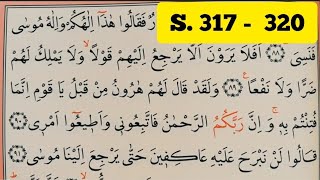 S. 317 - 320
فَقَالُوا هٰذَٓا اِلٰهُكُمْ وَاِلٰهُ مُوسٰى
فَنَسِىَ ﴿٨٨﴾ اَفَلَا يَرَوْنَ اَلَّا يَرْجِعُ اِلَيْهِمْ قَوْلًاۙ وَلَا يَمْلِكُ لَهُمْ
ضَرًّا وَلَا نَفْعًا۟ ﴿٨٩﴾ وَلَقَدْ قَالَ لَهُمْ هٰرُونُ مِنْ قَبْلُ يَا قَوْمِ اِنَّمَا
فُتِنْتُمْ بِهٖۚ وَاِنَّ رَبَّكُمُ الرَّحْمٰنُ فَاتَّبِعُونٖى وَاَطٖيعُٓوا اَمْرٖى ﴿٩٠﴾
قَالُوا لَنْ نَبْرَحَ عَلَيْهِ عَاكِفٖينَ حَتّٰى يَرْجِعَ اِلَيْنَا مُوسٰى